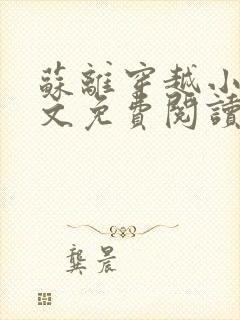 蘇離穿越小
文免費閱讀
龔晨